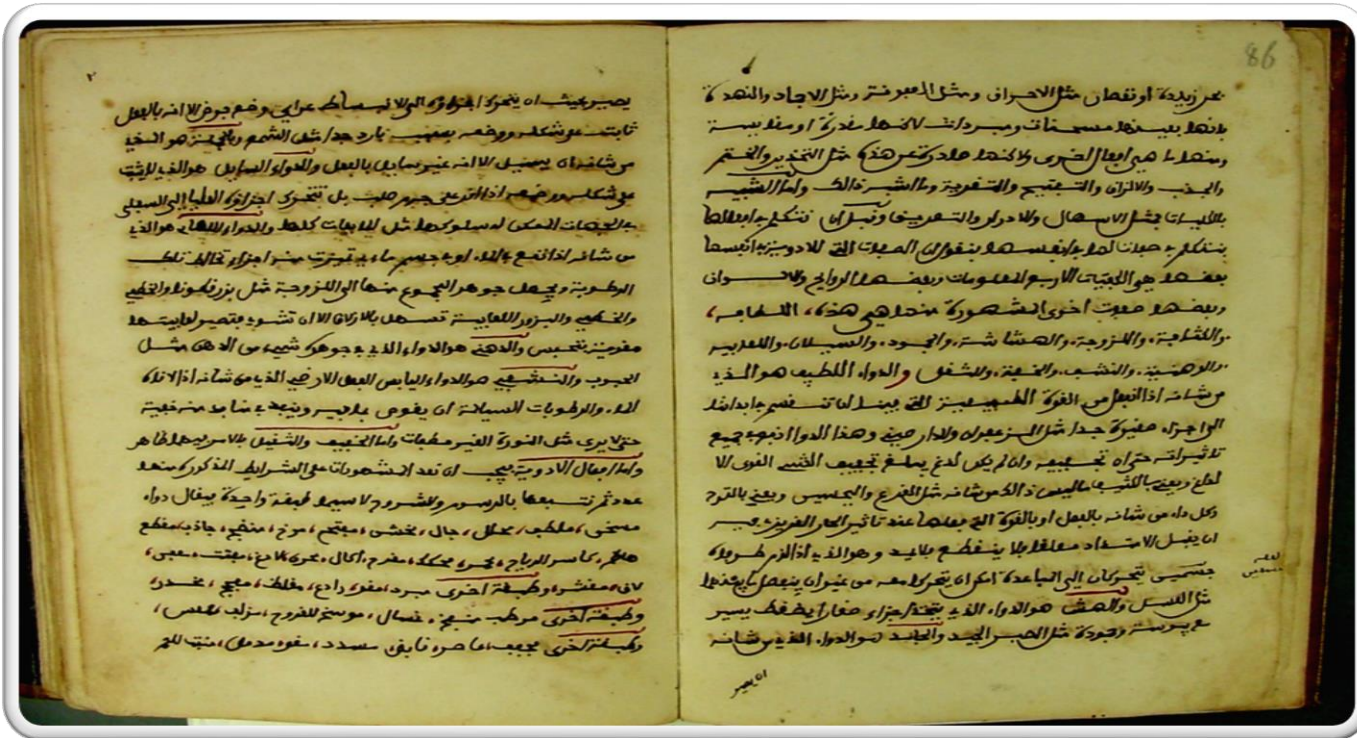 86
بحر زيادة او نقصان مثل الاحراق ومثل العفونة ومثل الاجماد والنهوة
فانها بعينها مسخنات ومبردات لاكنها مقدرة او مقايسة
ومنها ما هي افعال اخرى ولاكنها صادرة عن هذه مثل التخدير والختم
والجذب والالزاق والتفتيح والتغرية وما اشبه ذالك واما الشبيهة
بالكليات فمثل الاسهال والادرار والتعريق وقبل ان نتكلم في افعالها
نتكلم في صفات لها في انفسها فنقول ان الصفات التي للادوية في انفسها
بعضها هي الكيفيات الاربع المعلومات وبعضها الروايح والالوان
وبعضها صفات اخرى المشهورة منها هي هذه، اللطافة،
والكثافة، واللزوجة، والهشاشة، والجمود، والسيلان، واللعابية
والدهنية، والنشف، والخفة، والثقل والدواء اللطيف هو الذي
من شانه اذا انفعل من القوة الطبيعية التي فينا ان تنقسم في ابداننا
الى اجزاء صغيرة جدا مثل الزعفران والدارصيني وهذا الدوا انفع في جميع
تاثيراته حتى ان تجفيفه وان لم يكن لذع يبلغ تجفيف الشيء القوى الا
لذاع ونعني بالكثيف ما ليس ذالك من شانه مثل القرع والجبسين ونعني باللزج
وكل دواء من شانه بالفعل او بالقوة التي يفعلها عند تاثير الحار الغريزي فيه
ان يقبل الامتداد معلقا فلا ينقطع فلا يد وهو الذي اذا الزم طرفاه
جسمين يتحركان الى المباعدة امكن ان يتحركا معه من غير ان ينفصل ما بينهما
مثل العسل والهش هو الدواء الذي يتجزا اجزاء صغارا بضغط يسير
مع يبوسة وجمودة مثل الصبر الجيد والجامد هو الدواء الذي من شانه
ان يصير
٢
يصير بحيث ان يتحرك اجزاؤه الى الانبساط عن اي وضع فرض الا انه بالفعل
ثابت على شكله ووضعه بسبب بارد جدا مثل الشمع وبالجملة هو الذي
من شانه ان يسيل الا انه غير سايل بالفعل والدواء السايل هو الذي لا يثبت
على شكله ووضعه اذا اقر على جرم صلب بل تتحرك اجزاؤه العليا الى السفلى
في الجهات الممكن له سلوكها مثل المايعات كلها والدواء اللعابي هو الذي
من شانه اذا نقع في الماء او في جسم مائي تميزت منه اجزاء تخالط تلك
الرطوبة ويحصل جوهر المجموع منها الى اللزوجة مثل بزر قطونا والخطمي
والبزور اللعابية تسهل بالازلاق الا ان تشوى فتصير لعابيتها
مغرية فتحبس والدهني هو الدواء الذي في جوهره شيء من الدهن مثل
الحبوب والنشفي هو الدواء اليابس بالفعل الارضي الذي من شانه اذا لاقاه
الماء والرطوبات السيالة ان يغوص فيه وينفذ في منافذ منه خفية
حتى لا يرى مثل النورة الغير مطفاة واما الخفيف والثقيل فالامر فيها ظاهر
واما افعال الادوية فيجب ان نعد المشهورات على الشرايط المذكورة منها
عدد ثم نتبعها بالرسوم والشروح لاسمها طبقة واحدة فيقال دواء
مسخن، ملطف، محلل، جال، مخشن، مفتح، مرخ، منضج، جاذب، مقطع
هاضم، كاسر الرياح، محمر، محكك، مقرح، اكال، محرق لاذع، مفتت، معفن،
كاو، مقشر، وطبقة اخرى مبرد، مقو، رادع، مغلظ، مفجج، مخدر،
وطبقة اخرى مرطب منفخ، غسال، موسخ للقروح، مزلق، مملس،
وطبقة اخرى مجفف، عاصر، قابض، مسدد، مغر، مدمل، منبت للحم